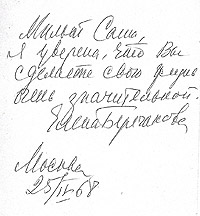 Милый Саша,
я уверена, что Вы
сделаете свою жизнь
очень значительной.
Елена
Москва
25/IV 68